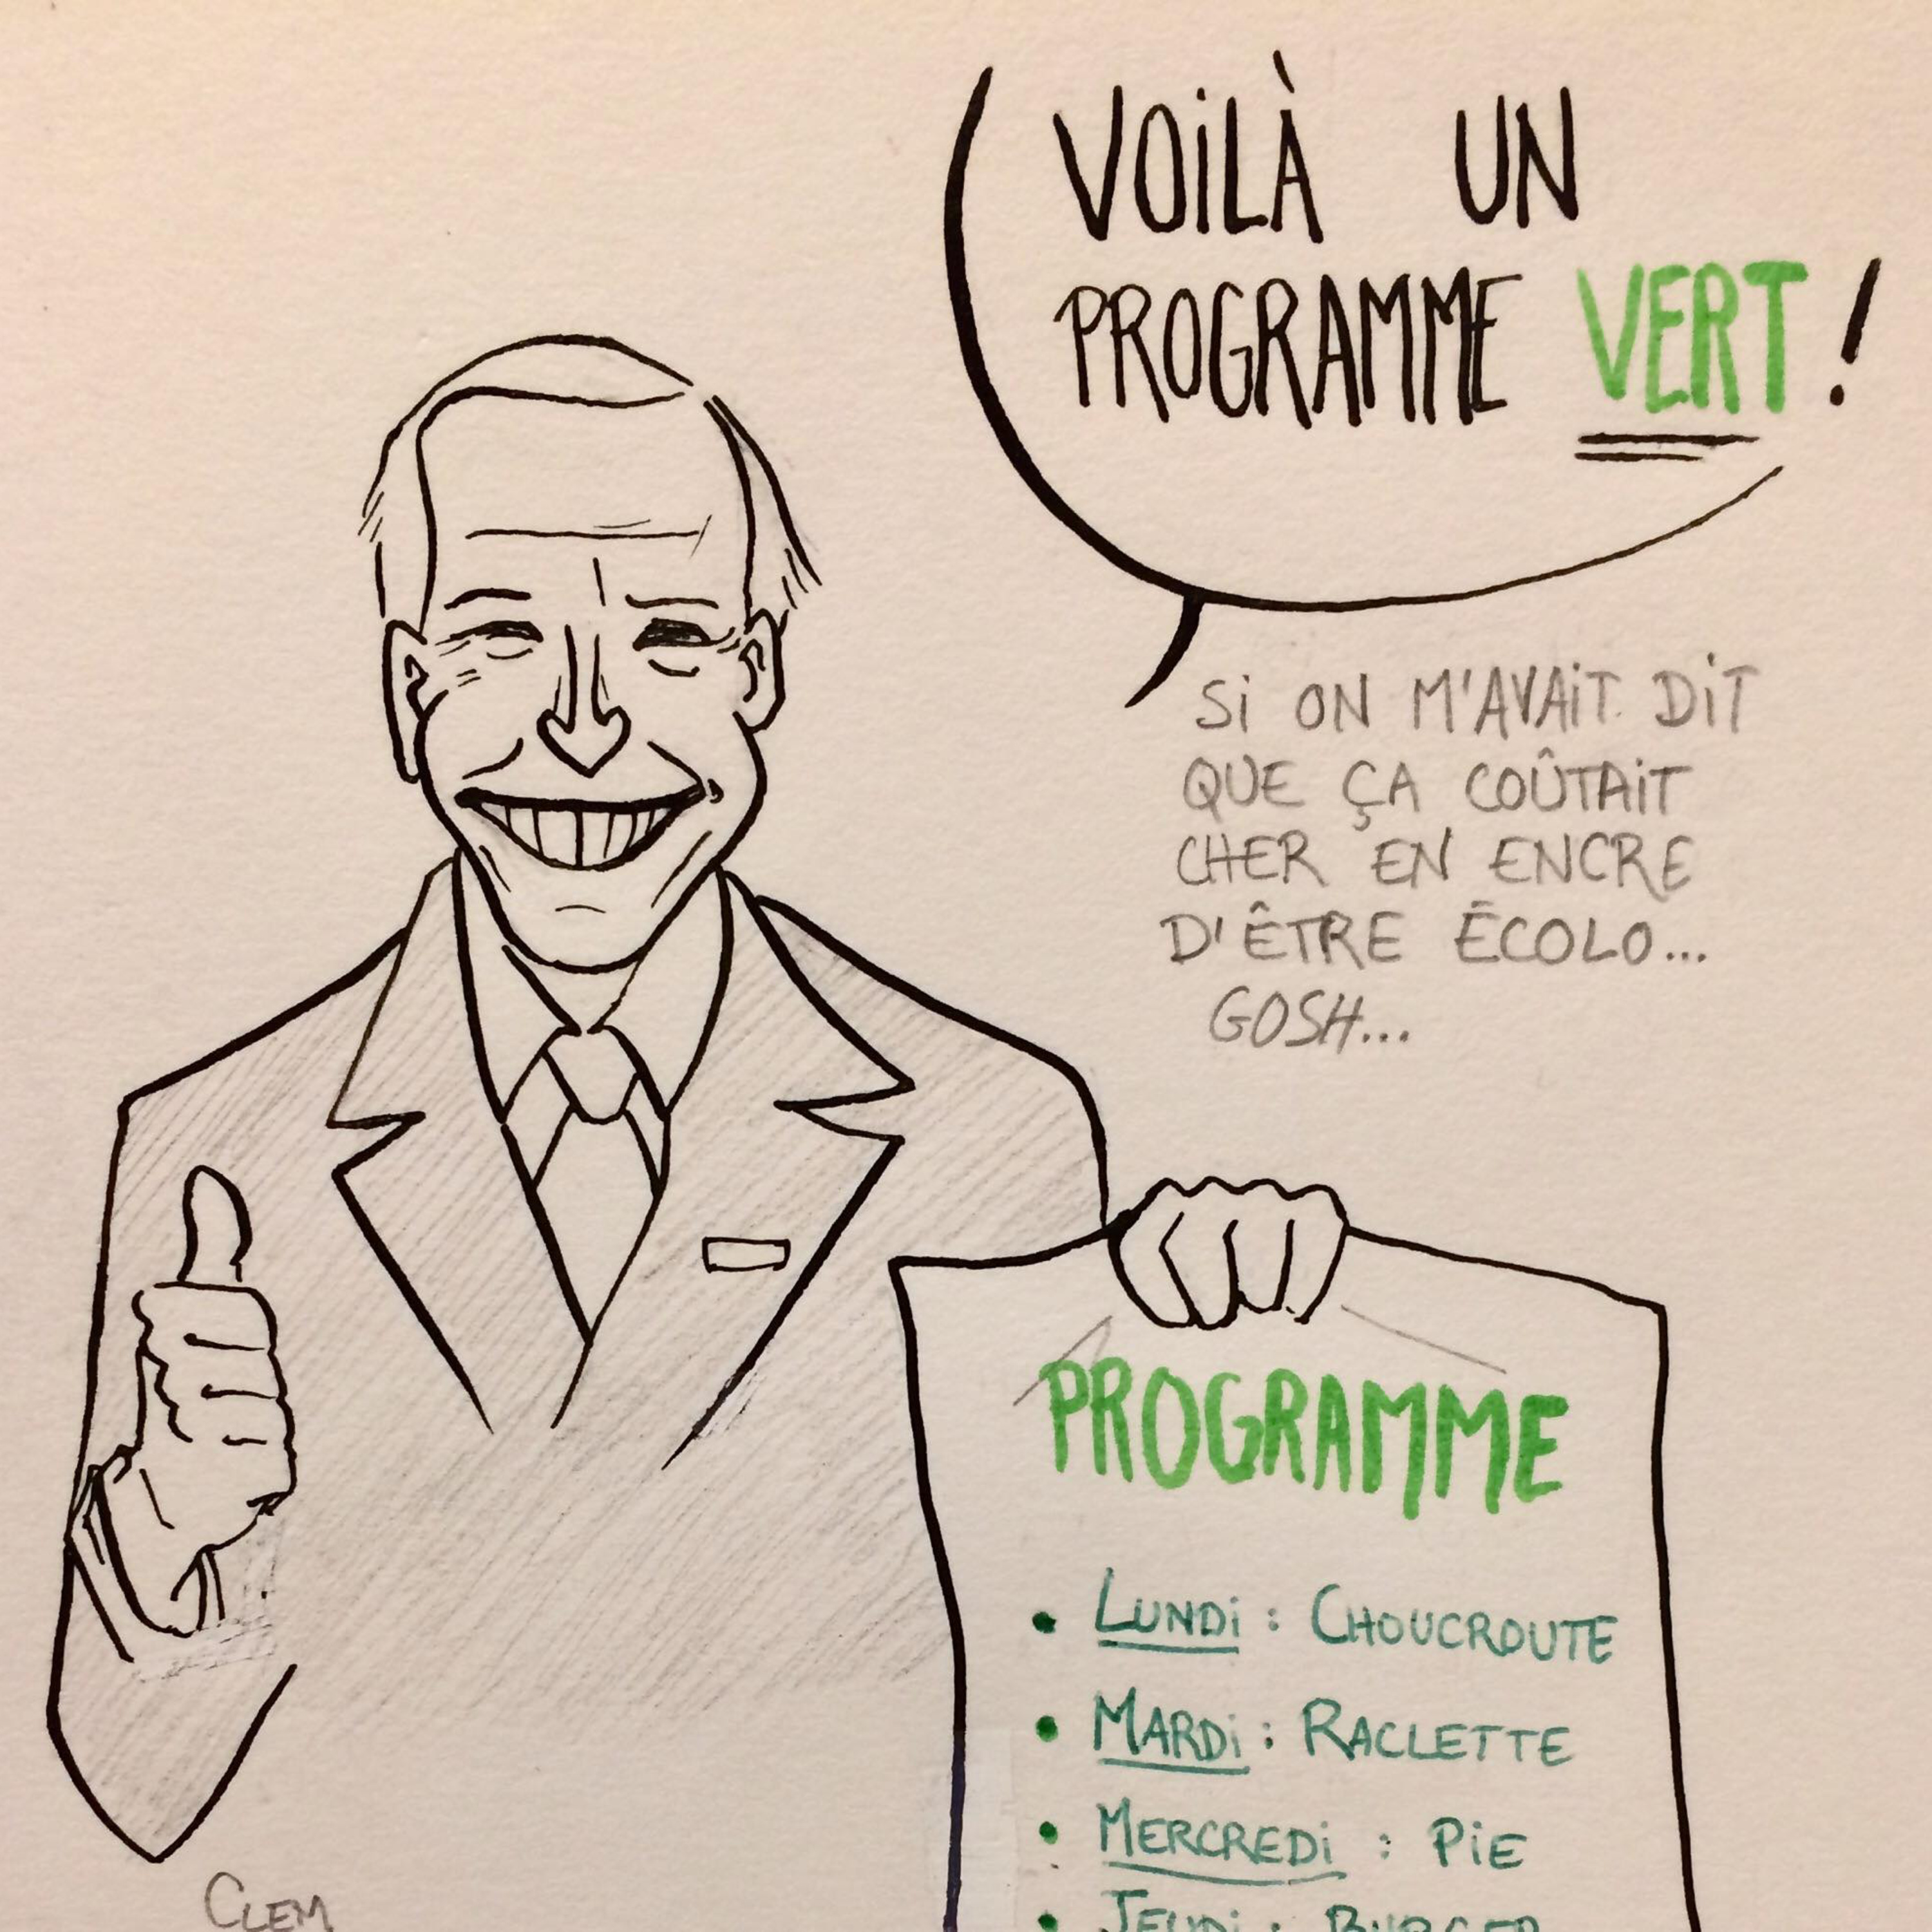 VOiLÀ UN
PROGRAMME VERT !
Si ON M'AVAiT DiT
QUE ÇA COÛTAiT
CHER EN ENCRE
D'ÊTRE ÉCOLO...
GOSH...
PROGRAMME
• LUNDi : CHOUCROUTE
• MARDi : RACLETTE
• MERCREDi : PiE
• JEUDi : BURGER
CLEM